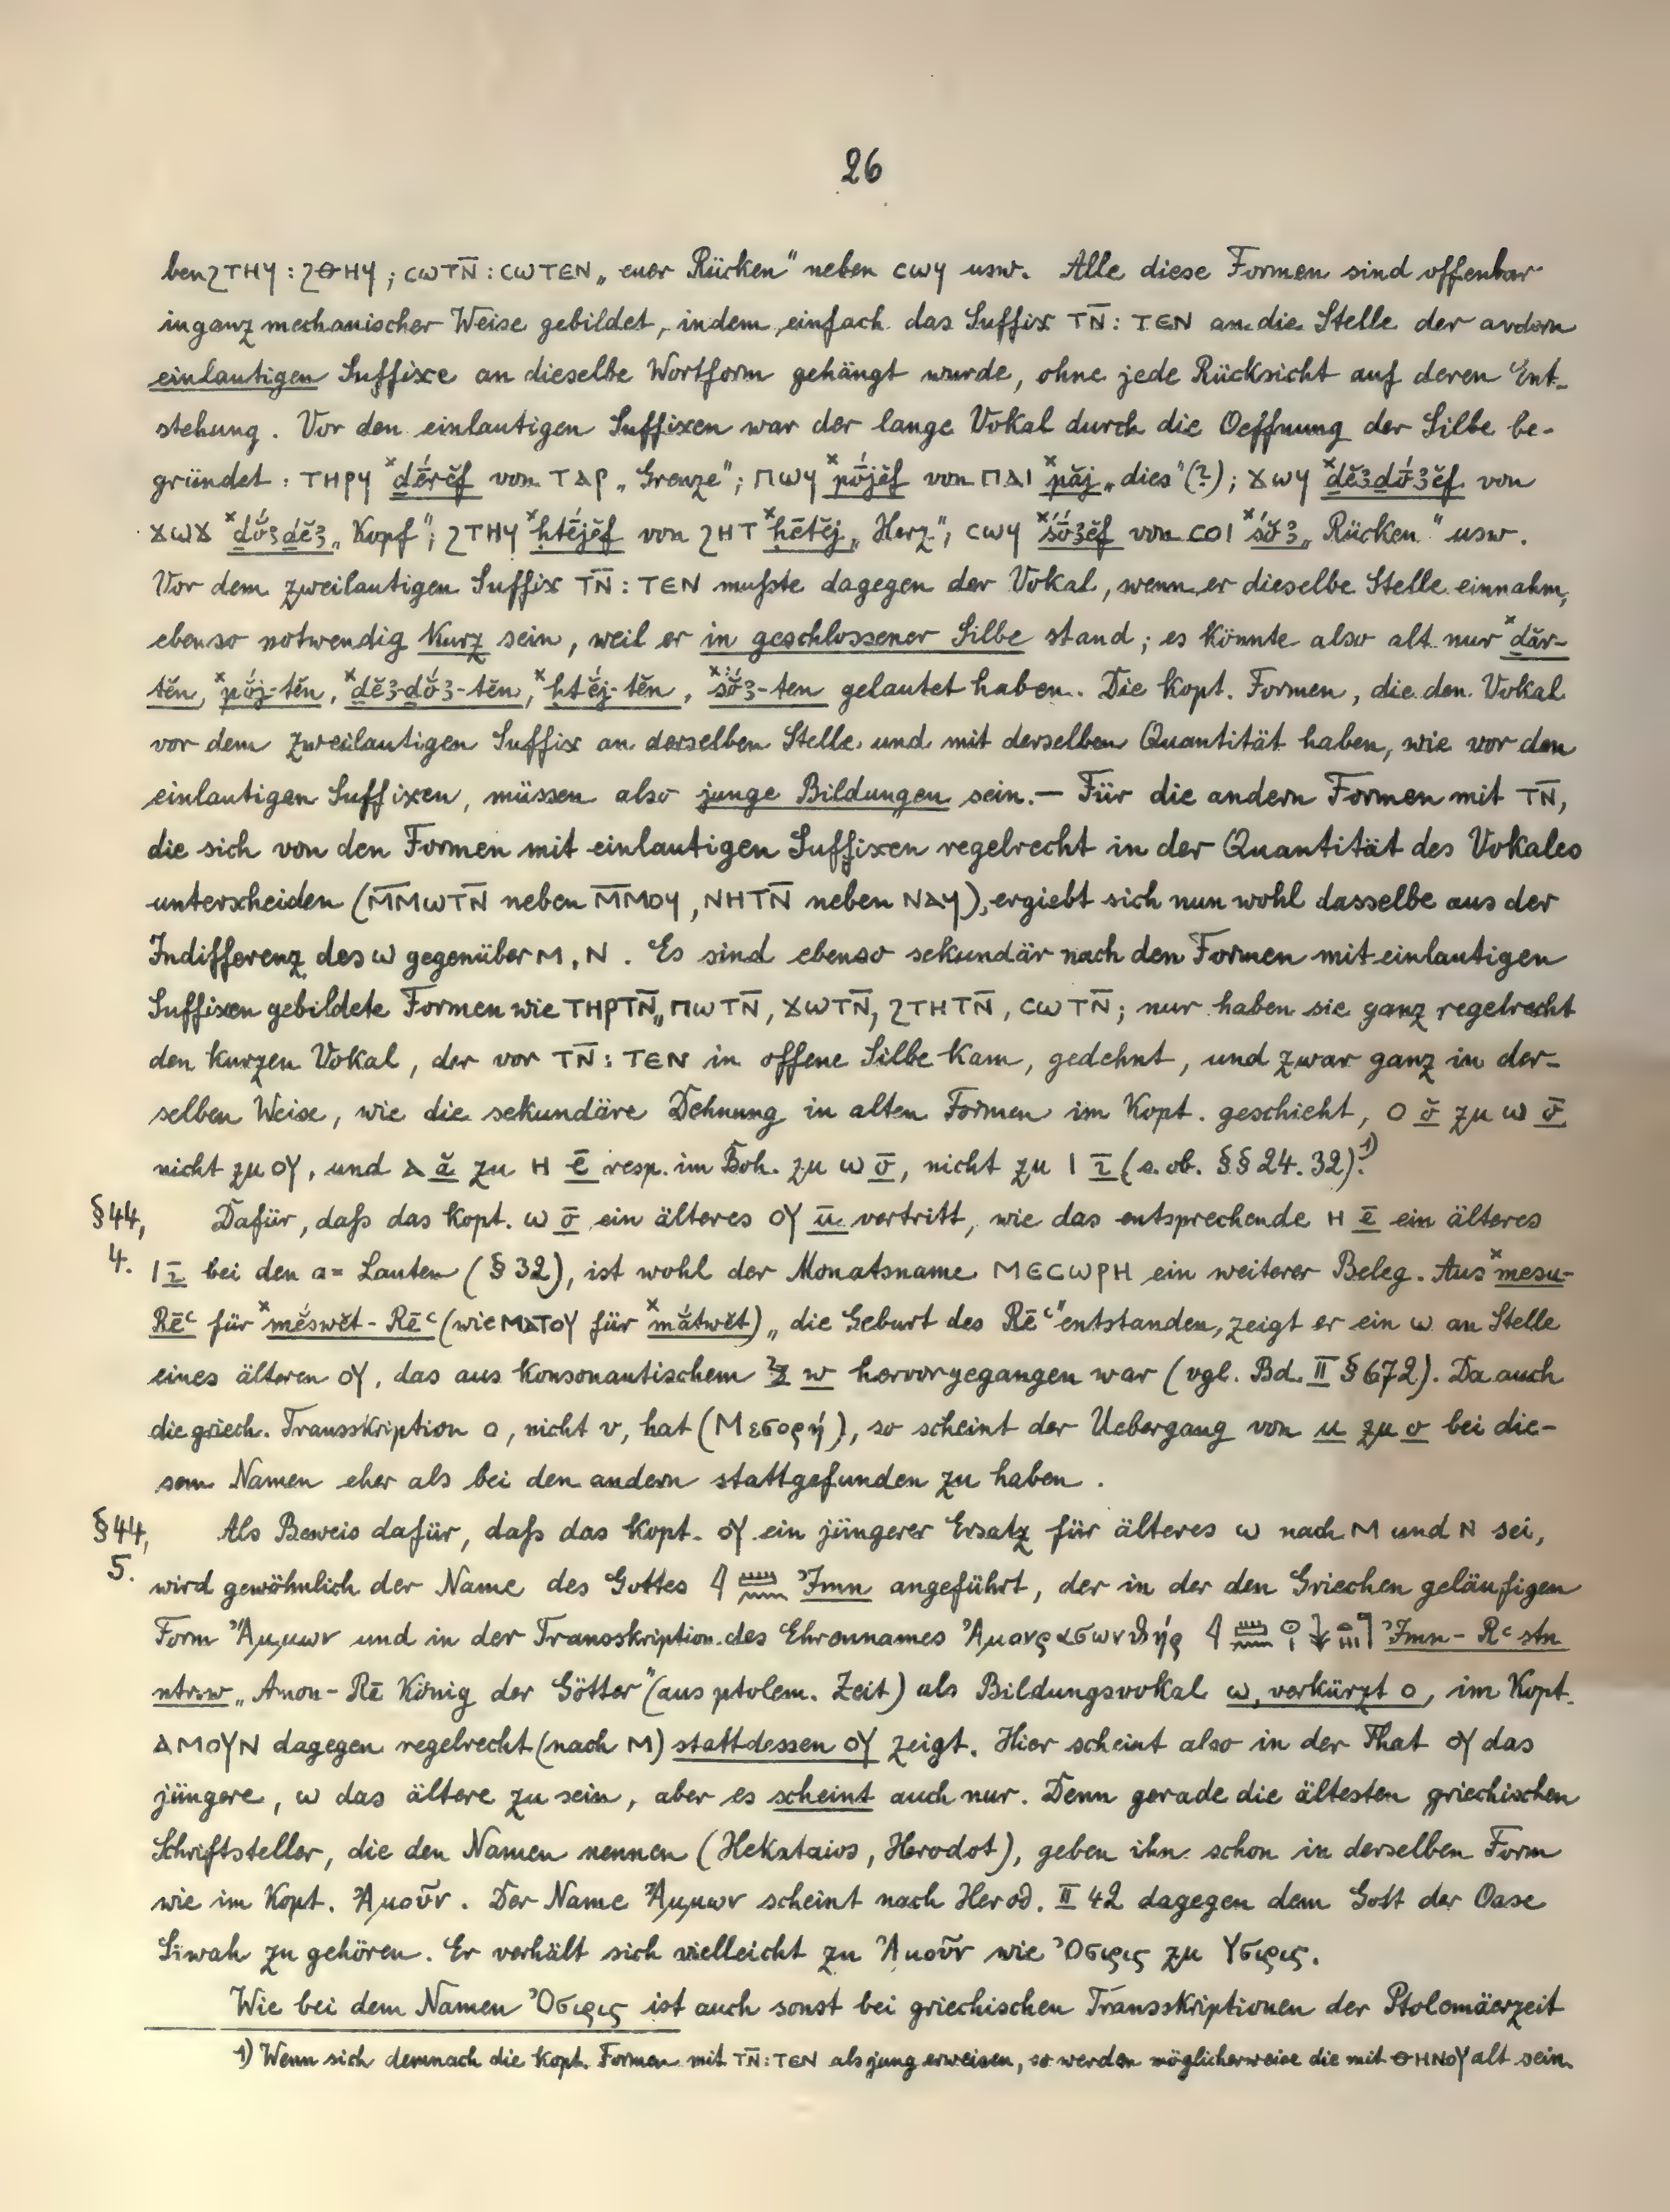 26
ben ϩⲧⲏϥ : ϩⲑⲏϥ ; ⲥⲱⲧⲛ̄ : ⲥⲱⲧⲉⲛ „euer Rücken" neben ⲥⲱϥ usw. Alle diese Formen sind offenbar
in ganz mechanischer Weise gebildet, indem einfach das Suffix ⲧⲛ̄ : ⲧⲉⲛ an die Stelle der andern
einlautigen Suffixe an dieselbe Wortform gehängt wurde, ohne jede Rücksicht auf deren Ent-
stehung. Vor den einlautigen Suffixen war der lange Vokal durch die Oeffnung der Silbe be-
gründet: ⲧⲏⲣϥ ˣḏḗrĕf von ⲧⲁⲣ „Grenze"; ⲡⲱϥ ˣpṓjĕf von ⲡⲁⲓ ˣpăj „dies" (?); ϫⲱϥ ˣḏĕꜣḏṓꜣĕf von
ϫⲱϫ ˣḏṓꜣḏĕꜣ „Kopf"; ϩⲧⲏϥ ˣḥtḗjĕf von ϩⲏⲧ ˣḥētĕj „Herz"; ⲥⲱϥ ˣśṓꜣĕf von ⲥⲟⲓ ˣśŏ́ꜣ „Rücken" usw.
Vor dem zweilautigen Suffix ⲧⲛ̄ : ⲧⲉⲛ mußte dagegen der Vokal, wenn er dieselbe Stelle einnahm,
ebenso notwendig kurz sein, weil er in geschlossener Silbe stand; es könnte also alt nur ˣḏăr-
tĕn, ˣpŏ́j-tĕn, ˣḏĕꜣḏŏ́ꜣ-tĕn, ˣḥtĕ́j-tĕn, ˣśŏ́ꜣ-ten gelautet haben. Die kopt. Formen, die den Vokal
vor dem zweilautigen Suffix an derselben Stelle und mit derselben Quantität haben, wie vor den
einlautigen Suffixen, müssen also junge Bildungen sein. — Für die andern Formen mit ⲧⲛ̄,
die sich von den Formen mit einlautigen Suffixen regelrecht in der Quantität des Vokales
unterscheiden (ⲙ̄ⲙⲱⲧⲛ̄ neben ⲙ̄ⲙⲟϥ, ⲛⲏⲧⲛ̄ neben ⲛⲁϥ), ergiebt sich nun wohl dasselbe aus der
Indifferenz des ⲱ gegenüber ⲙ, ⲛ. Es sind ebenso sekundär nach den Formen mit einlautigen
Suffixen gebildete Formen wie ⲧⲏⲣⲧⲛ̄, ⲡⲱⲧⲛ̄, ϫⲱⲧⲛ̄, ϩⲧⲏⲧⲛ̄, ⲥⲱⲧⲛ̄; nur haben sie ganz regelrecht
den kurzen Vokal, der vor ⲧⲛ̄ : ⲧⲉⲛ in offene Silbe kam, gedehnt, und zwar ganz in der-
selben Weise, wie die sekundäre Dehnung in alten Formen im Kopt. geschieht, ⲟ ŏ zu ⲱ ō
nicht zu ⲟⲩ, und ⲁ ă zu ⲏ ē resp. im Boh. zu ⲱ ō, nicht zu ⲓ ī (s. ob. §§ 24. 32).¹⁾
§44, Dafür, daß das kopt. ⲱ ō ein älteres ⲟⲩ ū vertritt, wie das entsprechende ⲏ ē ein älteres
4. ⲓ ī bei den a-Lauten (§ 32), ist wohl der Monatsname ⲙⲉⲥⲱⲣⲏ ein weiterer Beleg. Aus ˣmesu-
Rēꜥ für ˣmĕ́swĕt-Rēꜥ (wie ⲙⲁⲧⲟⲩ für ˣmătwĕt) „die Geburt des Rēꜥ" entstanden, zeigt er ein ⲱ an Stelle
eines älteren ⲟⲩ, das aus konsonantischem 𓅱 w hervorgegangen war (vgl. Bd. II § 672). Da auch
die griech. Transskription ο, nicht υ, hat (Μεσορή), so scheint der Uebergang von u zu o bei die-
sem Namen eher als bei den andern stattgefunden zu haben.
§44, Als Beweis dafür, daß das kopt. ⲟⲩ ein jüngerer Ersatz für älteres ⲱ nach ⲙ und ⲛ sei,
5. wird gewöhnlich der Name des Gottes 𓇋𓏠𓈖 Ꜣmn angeführt, der in der den Griechen geläufigen
Form Ἄμμων und in der Transskription des Ehrennames Ἀμονρασωνθήρ 𓇋𓏠𓈖 Ꜣmn-Rꜥ stn
ntrw „Amon-Rē König der Götter" (aus ptolem. Zeit) als Bildungsvokal ω, verkürzt ο, im Kopt.
ⲁⲙⲟⲩⲛ dagegen regelrecht (nach ⲙ) stattdessen ⲟⲩ zeigt. Hier scheint also in der That ⲟⲩ das
jüngere, ⲱ das ältere zu sein, aber es scheint auch nur. Denn gerade die ältesten griechischen
Schriftsteller, die den Namen nennen (Hekataios, Herodot), geben ihn schon in derselben Form
wie im Kopt. Ἀμοῦν. Der Name Ἄμμων scheint nach Herod. II 42 dagegen dem Gott der Oase
Siwah zu gehören. Er verhält sich vielleicht zu Ἀμοῦν wie Ὄσιρις zu Ὕσιρις.
Wie bei dem Namen Ὄσιρις ist auch sonst bei griechischen Transskriptionen der Ptolomäerzeit
1) Wenn sich demnach die kopt. Formen mit ⲧⲛ̄ : ⲧⲉⲛ als jung erweisen, so werden möglicherweise die mit ⲑⲏⲛⲟⲩ alt sein.